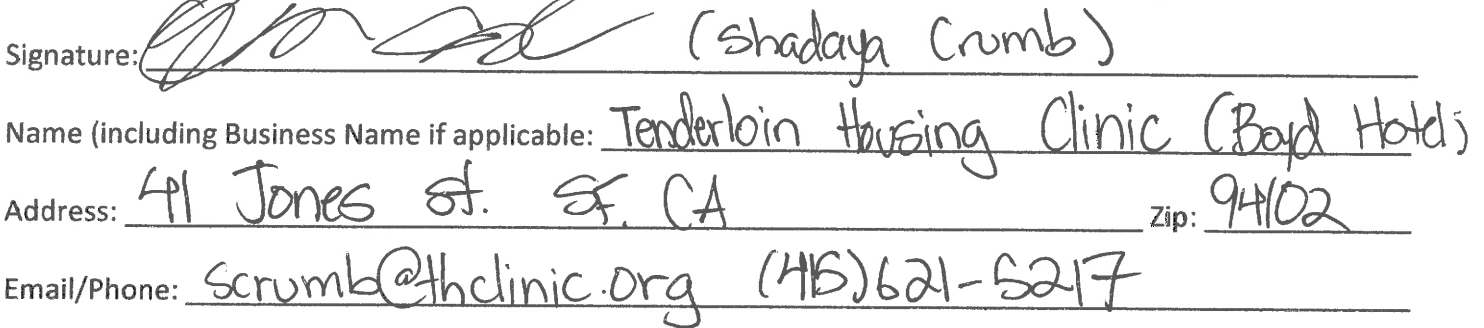 Signature: (Shadaya Crumb)
Name (including Business Name if applicable: Tenderloin Housing Clinic (Boyd Hotel)
Address: 41 Jones St. SF. CA Zip: 94102
Email/Phone: scrumb@thclinic.org (415)621-5217